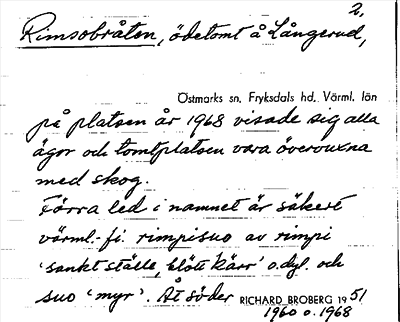 2.
Rimsobråten, ödetomt å Långerud,
Östmarks sn, Fryksdals hd, Värml. län
på platsen år 1968 visade sig alla
ägor och tomtplatsen vara övervuxna
med skog.
Förra led i namnet är säkert
värml.-fi. rimpisuo av rimpi
'sankt ställe, blött kärr' o.dyl. och
suo 'myr'. Åt söder RICHARD BROBERG 1951
1960 o. 1968